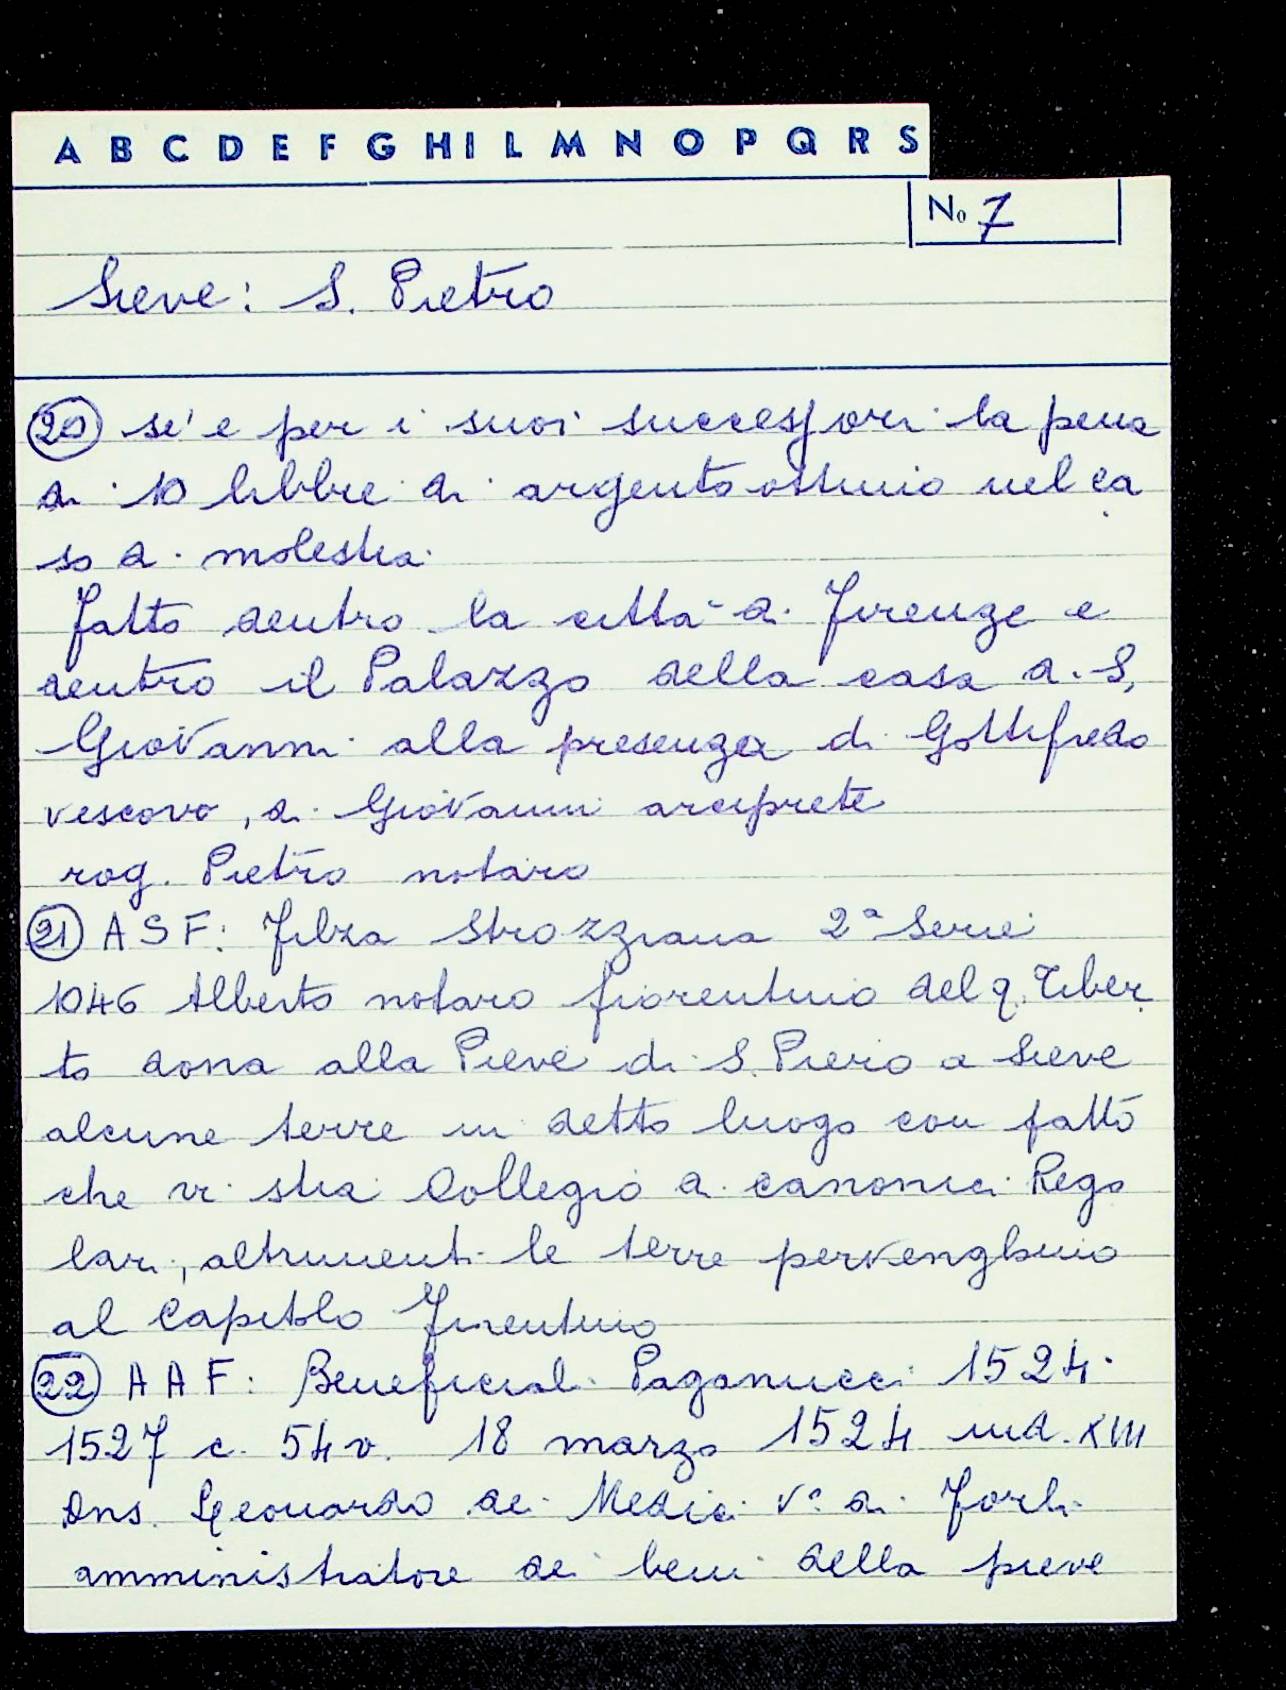 A B C D E F G H I L M N O P Q R S
No 7
Sieve: S. Pietro
20 se' e per i suoi successori la pena
di 10 libbre di argento ottimo nel ca
so di molestia
Fatto dentro la città di Firenze e
dentro il Palazzo della casa di S.
Giovanni alla presenza di Gottifredo
vescovo, di Giovanni arciprete
rog. Pietro notaro
21 ASF: Filza Strozziana 2ª Serie
1046 Alberto notaro fiorentino del q. Tiber
to dona alla Pieve di S. Piero a Sieve
alcune terre in detto luogo con patto
che vi stia Collegio di canonici Rego
lari, altrimenti le terre pervenghino
al Capitolo Fiorentino
22 AAF: Beneficiali Paganucci 1524-
1527 c. 54 v. 18 marzo 1524 ind. XIII
Dns. Leonardo de' Medici Vº di Forlì
amministratore dei beni della pieve